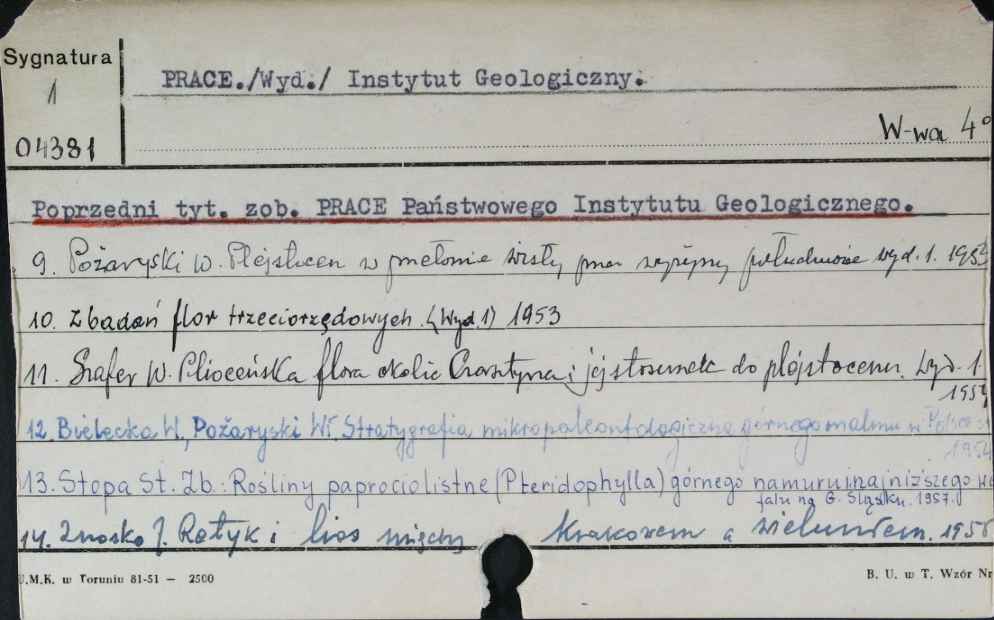 Sygnatura
1
04381
PRACE./Wyd./ Instytut Geologiczny.
W-wa 4°
Poprzedni tyt. zob. PRACE Państwowego Instytutu Geologicznego.
9. Pożaryski W. Plejstocen w przełomie Wisły przez wyżyny południowe wyd. 1. 1953
10. Z badań flor trzeciorzędowych. (Wyd. 1) 1953
11. Szafer W. Plioceńska flora okolic Czorsztyna i jej stosunek do plejstocenu. Wyd. 1.
1954
12. Bielecka W., Pożaryski Wł. Stratygrafia mikropaleontologiczna górnego malmu w
1954
13. Stopa St. Zb.: Rośliny paprociolistne (Pteridophylla) górnego namuru i najniższego
falu na G. Śląsku. 1957.
14. Znosko J. Retyk i lias między Krakowem a Wieluniem. 195
U.M.K. w Toruniu 81-51 — 2500
B. U. w T. Wzór Nr